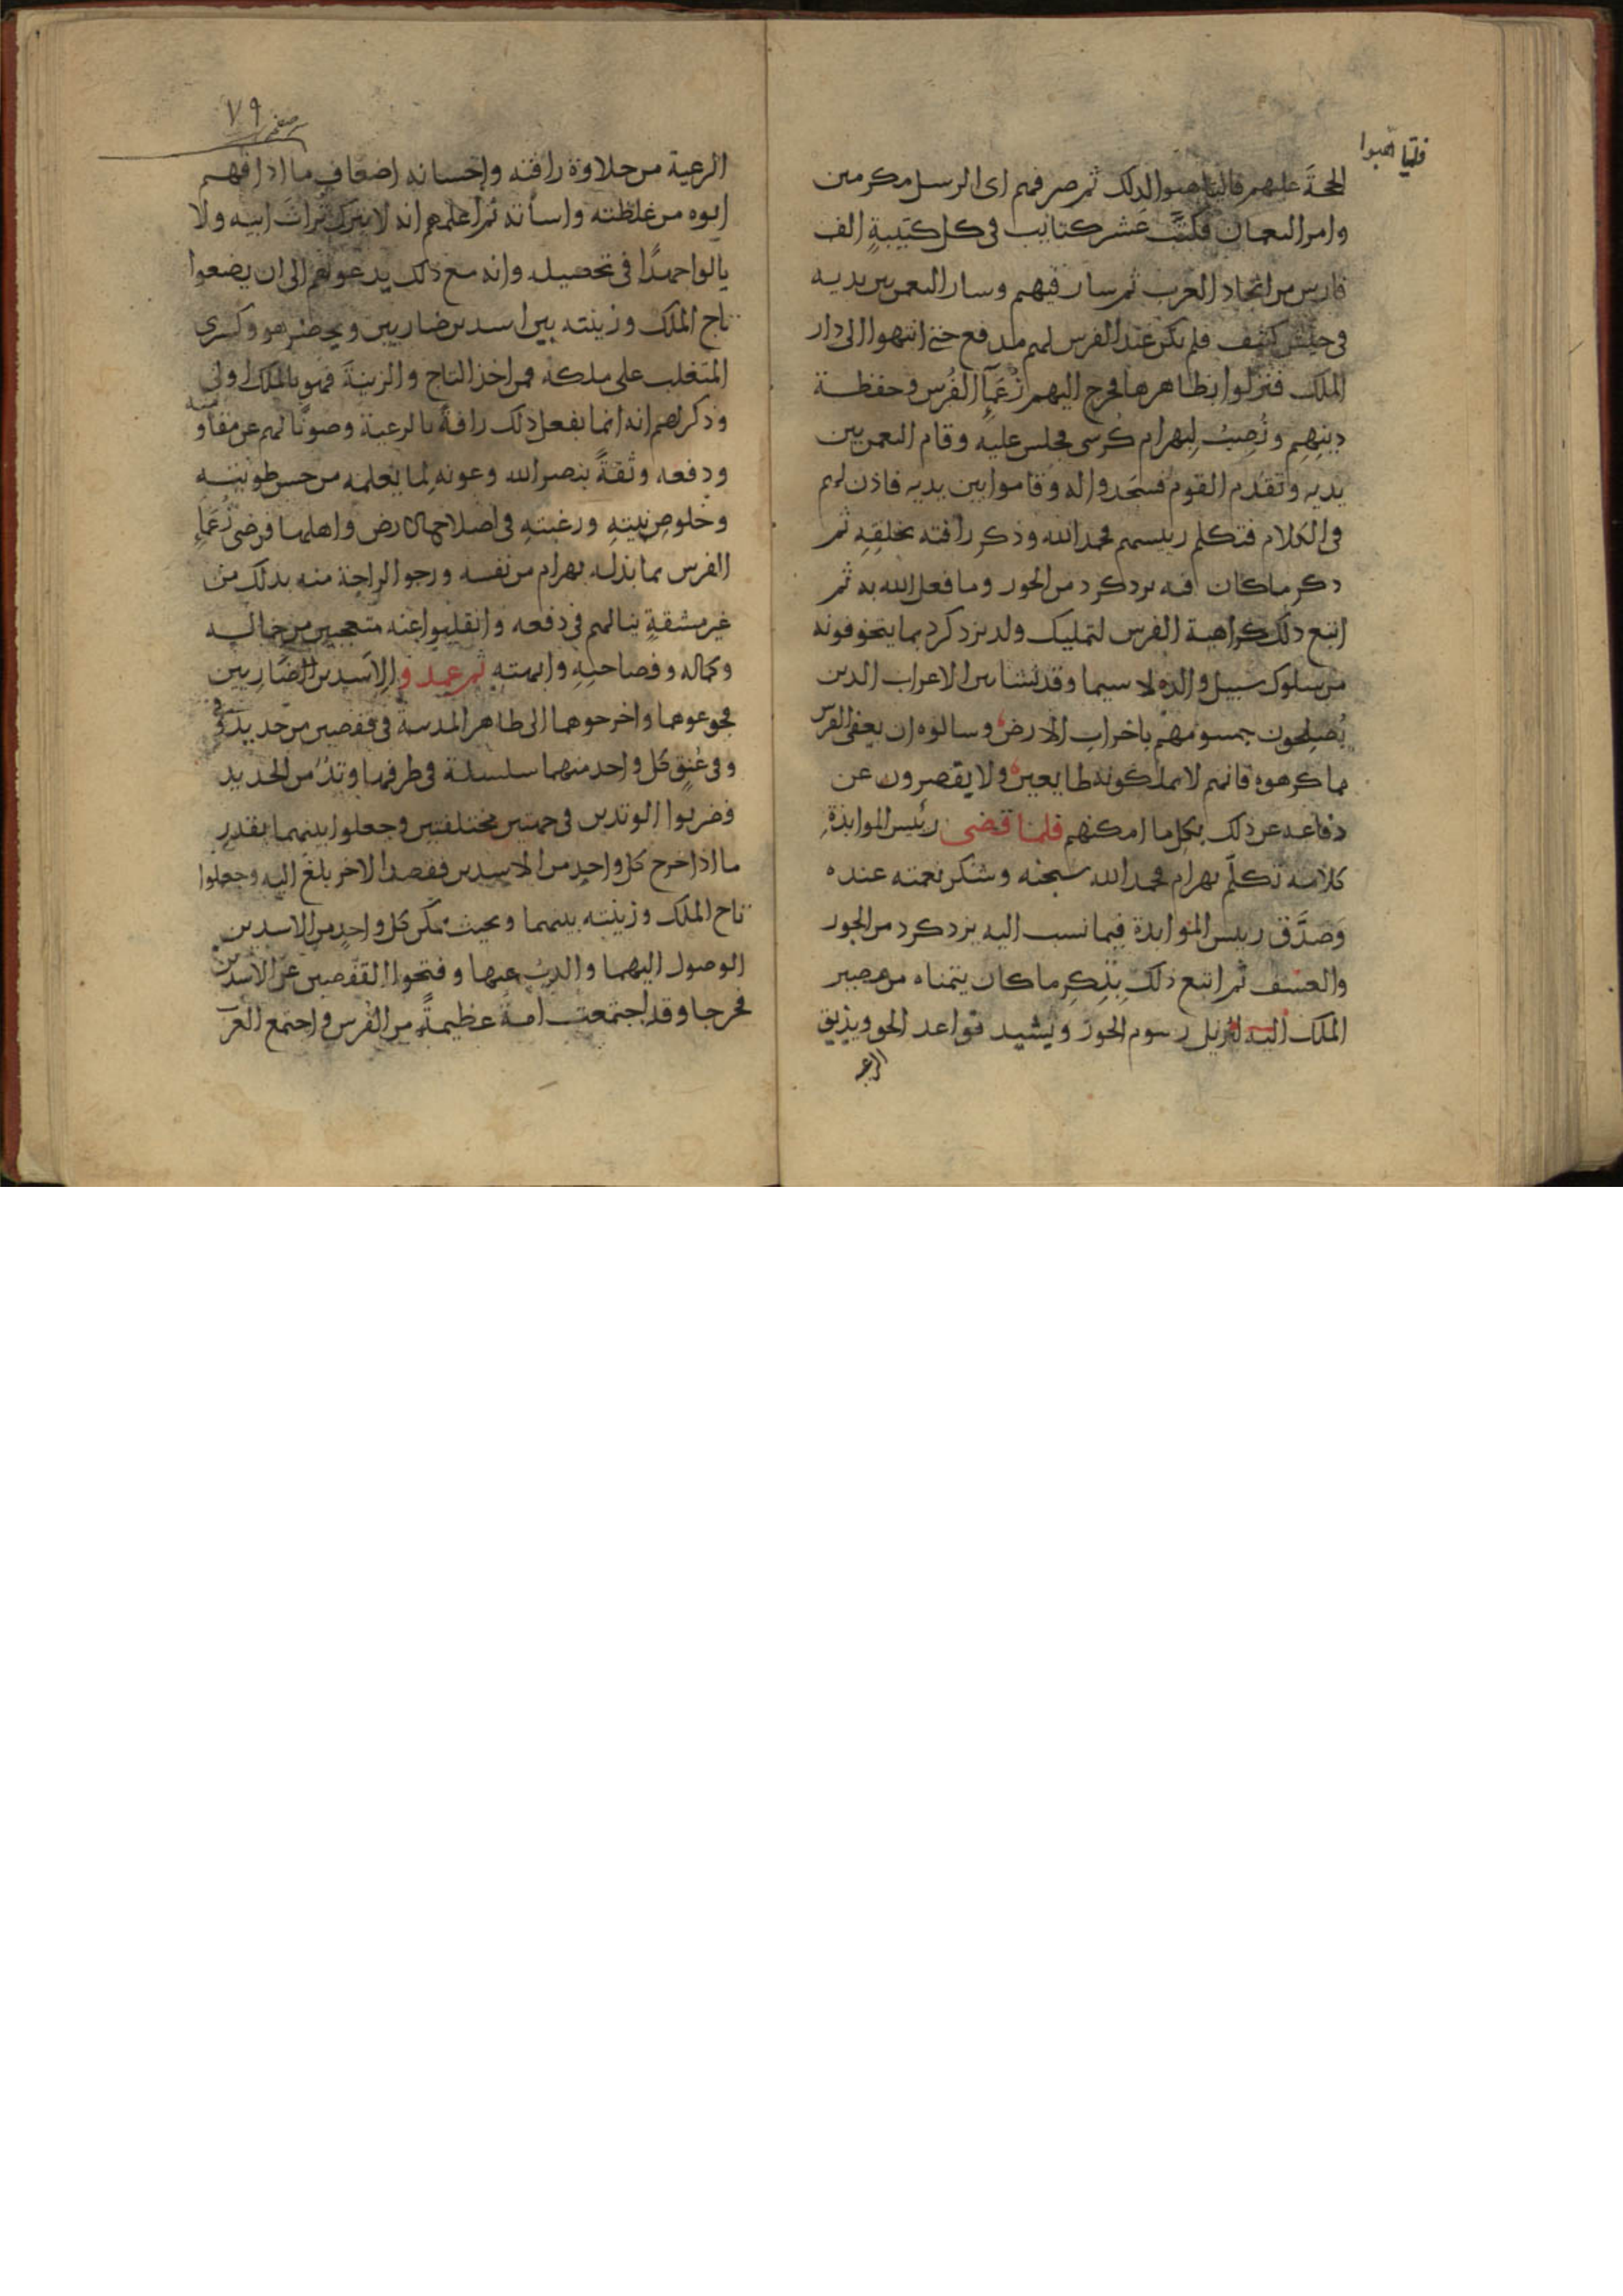 فلما اهبوا
الحجة عليهم فالتاهبوا لذلك ثم صرفهم اى الرسل مكرمين
وامر النعمان فكتب عشر كتايب فى كل كتيبة الف
فارس من انجاد العرب ثم سار فيهم وسار النعمن بين يديه
فى جيش كثيف فلم يكن عند الفرس لهم مدفع حتى انتهوا الى دار
الملك فنزلوا بظاهرها فخرج اليهم زعمآء الفرس وحفظة
دينهم ونصب لبهرام كرسى فجلس عليه وقام النعمن بين
يديه وتقدم القوم فسجدوا له وقاموا بين يديه فاذن لهم
فى الكلام فتكلم رييسهم فحمد الله وذكر رافته بخلقه ثم
ذكر ماكان فيه يزدكرد من الجور وما فعل الله به ثم
اتبع ذلك كراهية الفرس لتمليك ولد يزدكرد بما يتخوفونه
من سلوك سبيل والده لا سيما وقد نشا بين الاعراب الذين
يصلحون جسومهم باخراب الارض وسالوه ان يعفى الفرس
مما كرهوه فانهم لا يملكونه طايعين ولا يقصرون عن
دفاعه عن ذلك بكل ما امكنهم فلما قضى رئيس الموابذة
كلامه تكلم بهرام فحمد الله سبحنه وشكر نعمته عنده
وصدق رييس الموابذة فيما نسب اليه يزدكرد من الجور
والعسف ثم اتبع ذلك بذكر ما كان يتمناه من مصير
الملك اليه ليزيل رسوم الجور ويشيد قواعد الحق ويذيق
الرعية
صفر ٧٩
الرعية من حلاوة رافته واحسانه اضعاف ما اذاقهم
ابوه من غلظته واساته ثم اعلمهم انه لا يترك تراث ابيه ولا
يالوا جهدا فى تحصيله وانه مع ذلك يدعوهم الى ان يضعوا
تاج الملك وزينته بين اسدين ضاريين ويحضر هو وكسرى
المتغلب على ملكه فمن اخذ التاج والزينة فهو بالملك اولى
وذكر لهم انه انما يفعل ذلك رافة بالرعية وصونا لهم عن مقاومته
ودفعه وثقة بنصر الله وعونه لما يعلمه من حسن طويته
وخلوص نيته ورغبته فى اصلاح الارض واهلها فرضى زعماء
الفرس بما بذله بهرام من نفسه ورجوا الراحة منه بذلك من
غير مشقة ينالهم فى دفعه وانقلبوا عنه متعجبين من جماله
وكماله وفصاحته وابهته ثم عمدوا الى الاسدين الضاريين
فجوعوهما واخرجوهما الى ظاهر المدينة فى قفصين من حديد
وفى عنق كل واحد منهما سلسلة فى طرفها وتد من الحديد
وضربوا الوتدين فى جهتين مختلفتين وجعلوا بينهما بقدر
ما اذا خرج كل واحد من الاسدين فقصد الاخر بلغ اليه وجعلوا
تاج الملك وزينته بينهما وبحيث تمكن كل واحد من الاسدين
الوصول اليهما والذب عنها وفتحوا القفصين عن الاسدين
فخرجا وقد اجتمعت امة عظيمة من الفرس واجتمع العرب